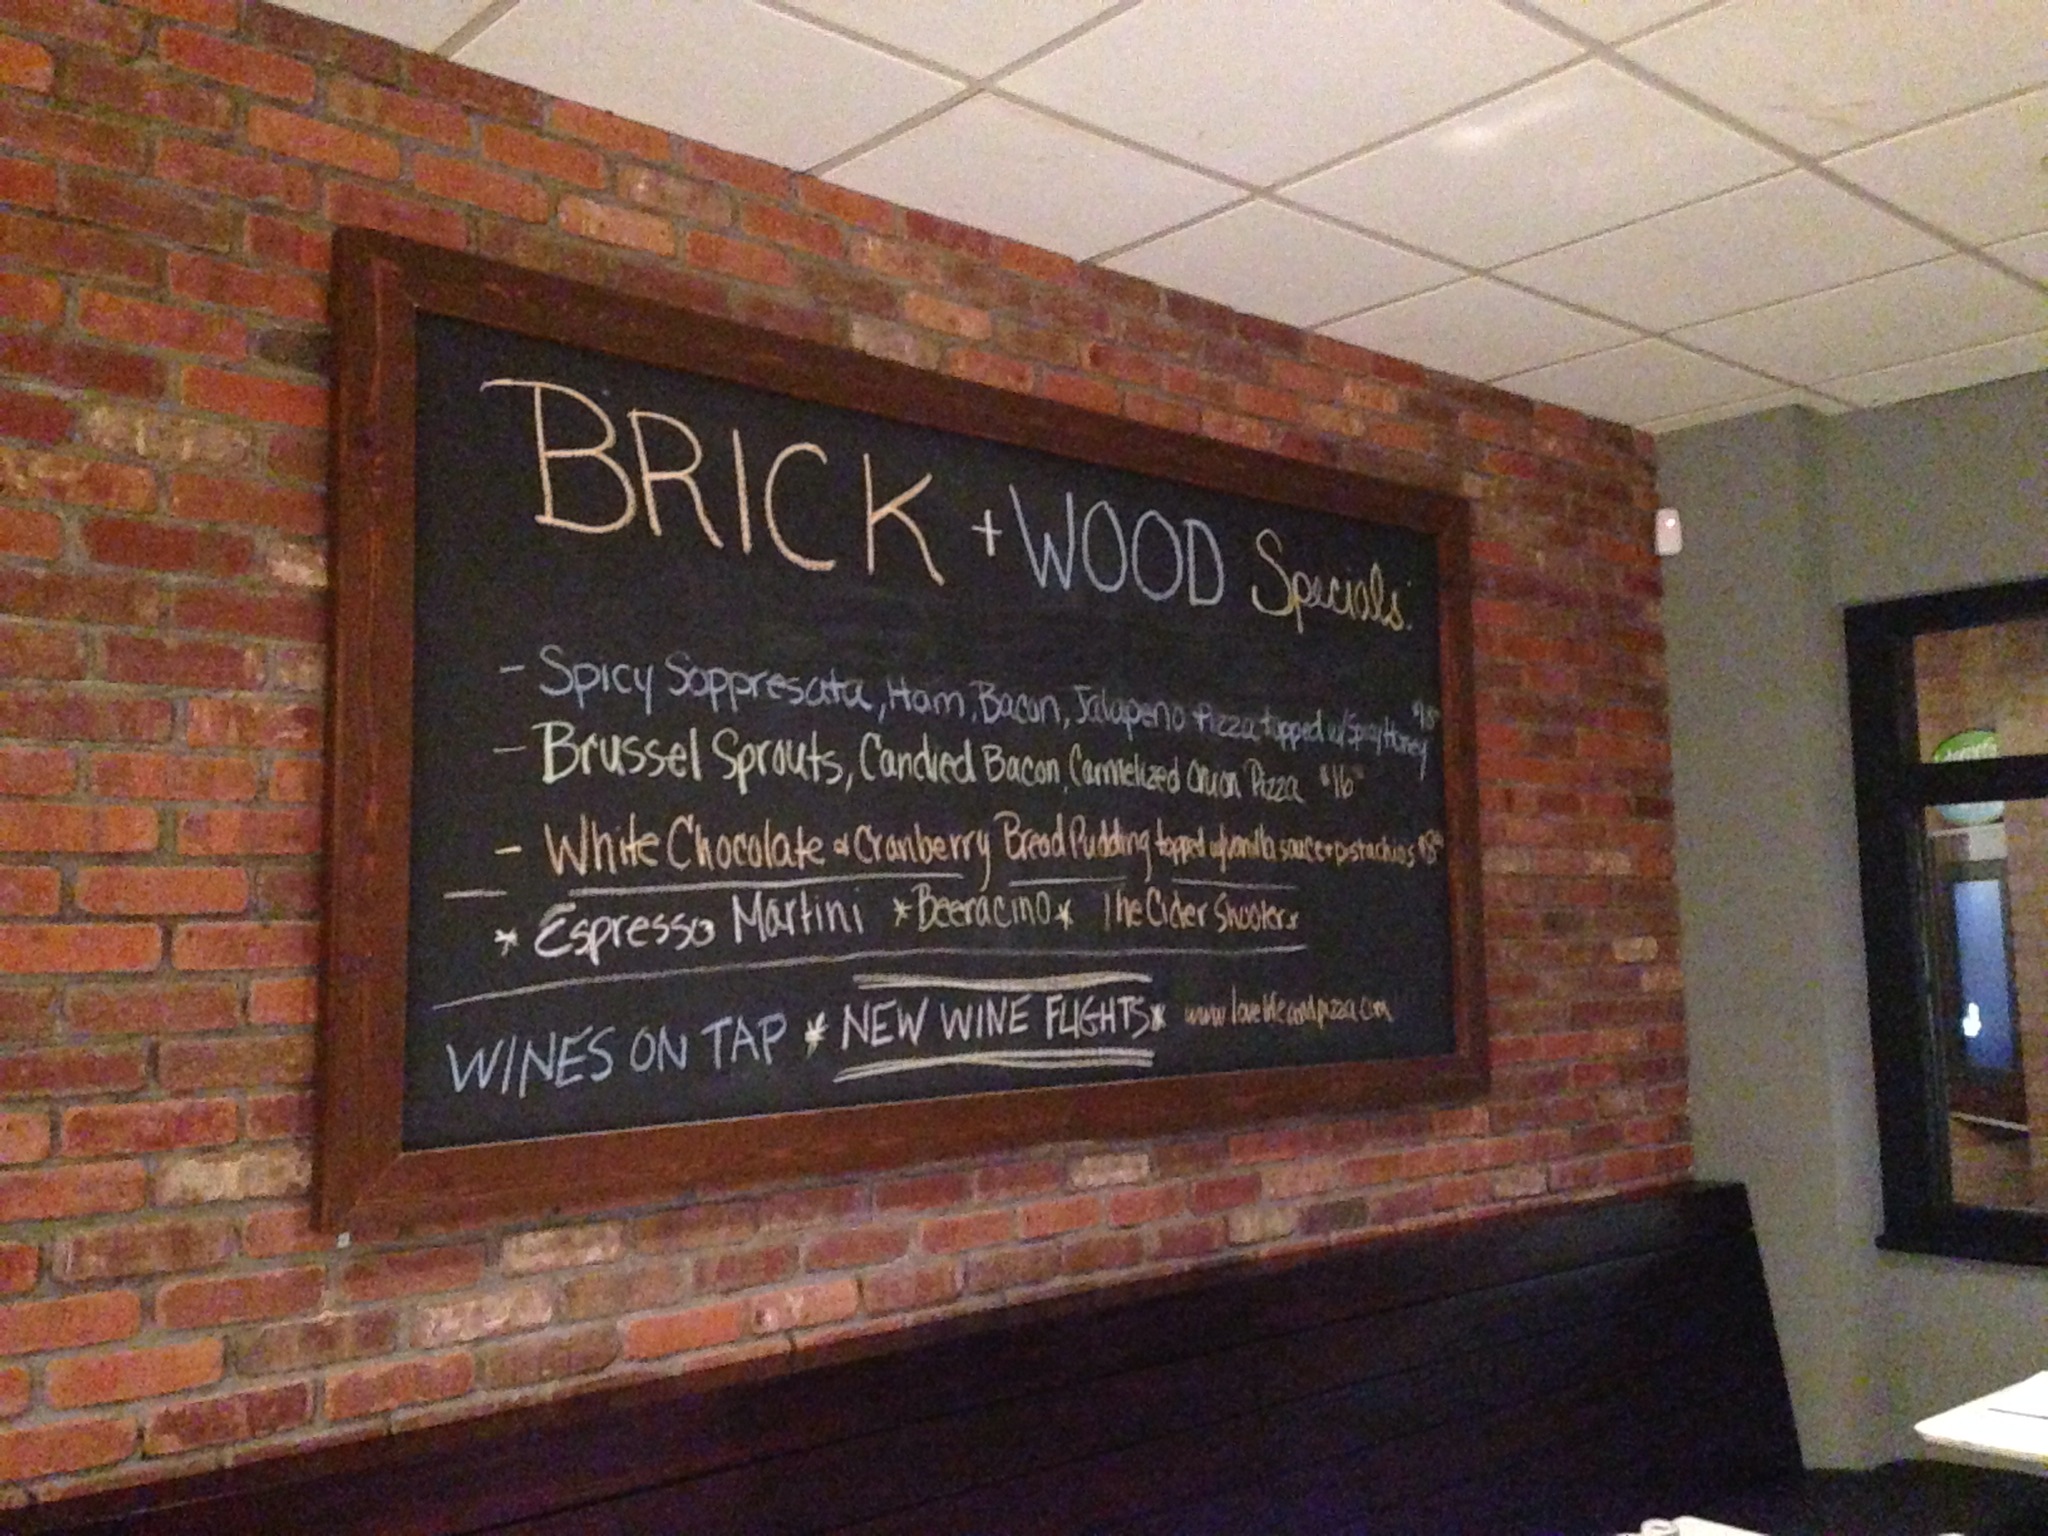 BRICK + WOOD Specials:
- Spicy Soppresata, Ham, Bacon, Jalapeno Pizza topped w/ Spicy Honey
- Brussel Sprouts, Candied Bacon, Carmelized Onion Pizza $16
- White Chocolate & Cranberry Bread Pudding topped w/ vanilla sauce + pistachios $8
* Espresso Martini * Beeracino * The Cider Shooter *
WINES ON TAP * NEW WINE FLIGHTS * www.lovelifeandpizza.com